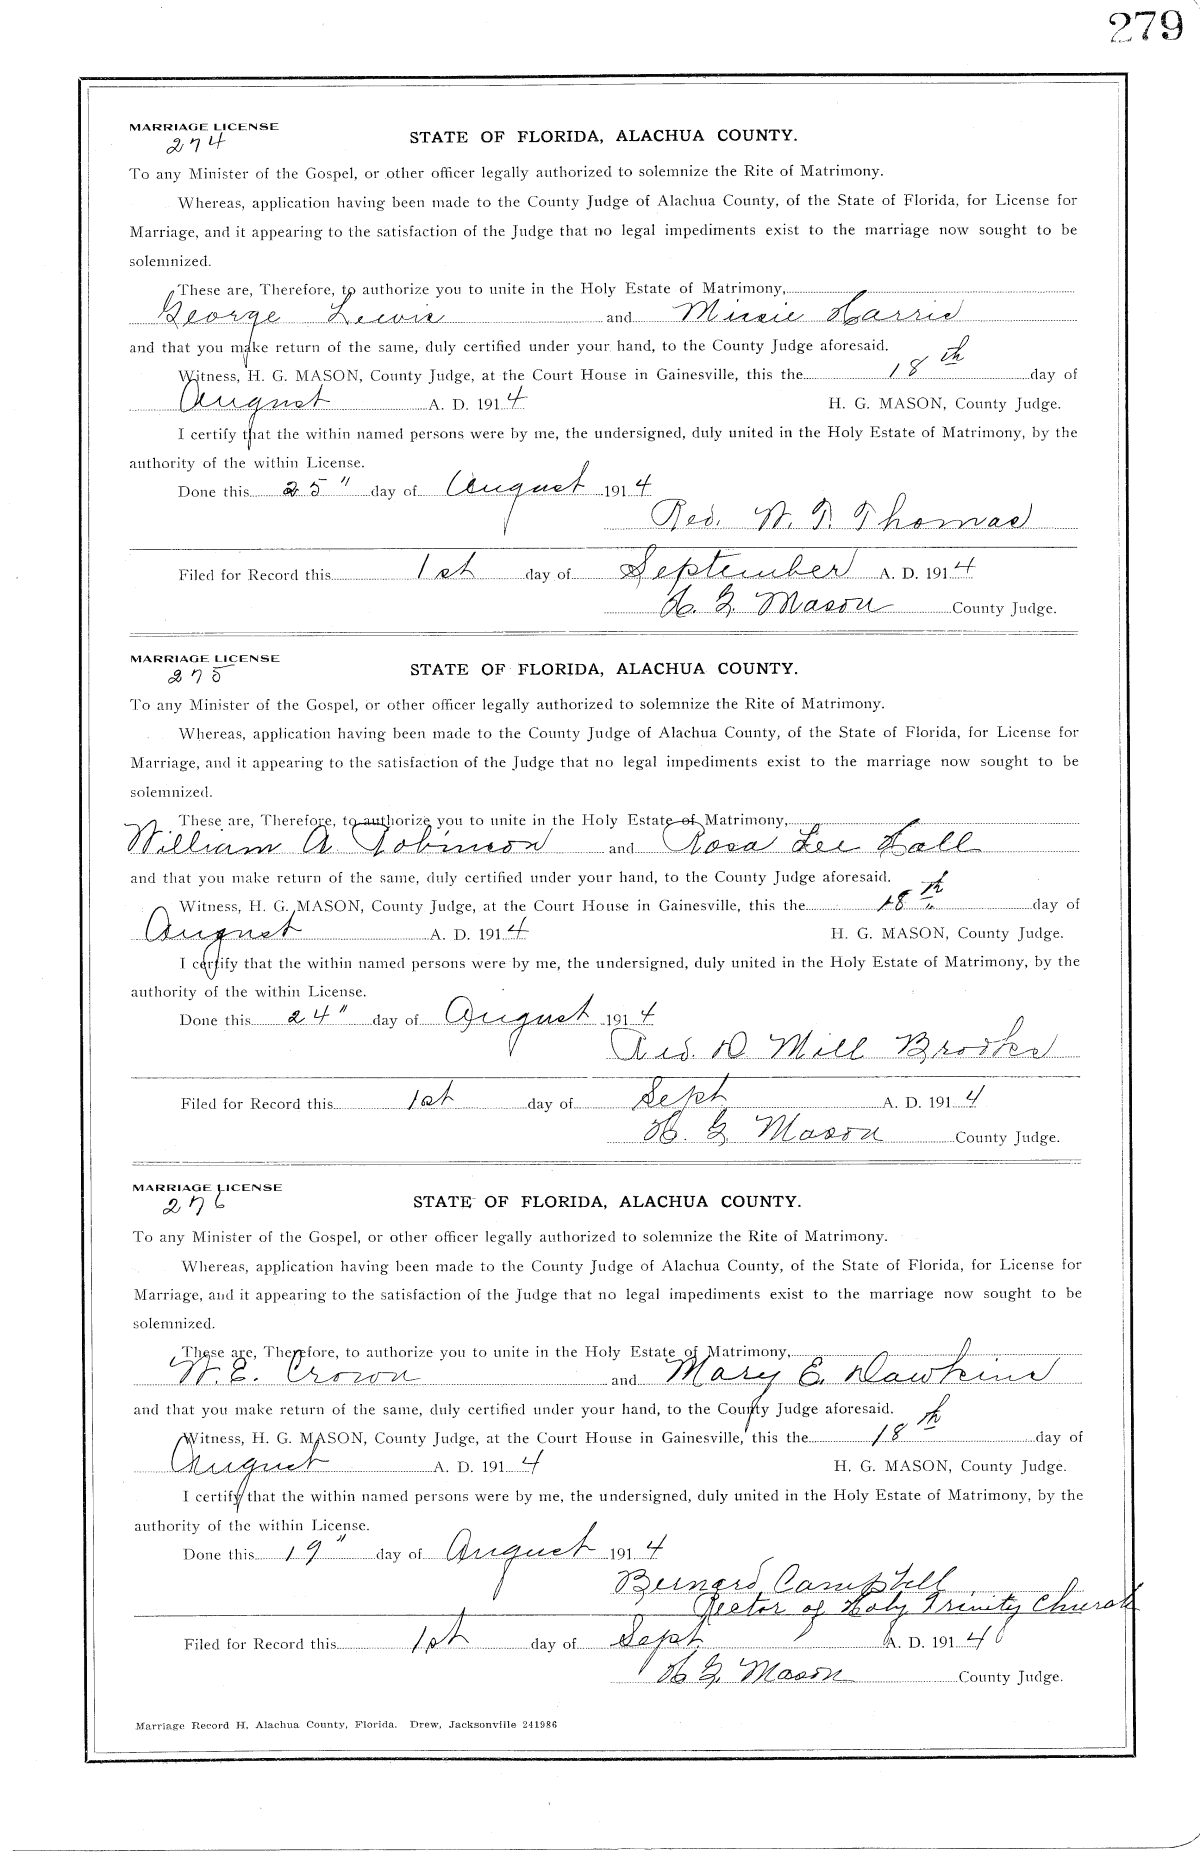 279
MARRIAGE LICENSE
274
STATE OF FLORIDA, ALACHUA COUNTY.
To any Minister of the Gospel, or other officer legally authorized to solemnize the Rite of Matrimony.
Whereas, application having been made to the County Judge of Alachua County, of the State of Florida, for License for
Marriage, and it appearing to the satisfaction of the Judge that no legal impediments exist to the marriage now sought to be
solemnized.
These are, Therefore, to authorize you to unite in the Holy Estate of Matrimony,
George Lewis and Missie Harris
and that you make return of the same, duly certified under your hand, to the County Judge aforesaid.
Witness, H. G. MASON, County Judge, at the Court House in Gainesville, this the 18th day of
August A. D. 1914 H. G. MASON, County Judge.
I certify that the within named persons were by me, the undersigned, duly united in the Holy Estate of Matrimony, by the
authority of the within License.
Done this 25" day of August 1914
Rev. W. P. Thomas
Filed for Record this 1st day of September A. D. 1914
H. G. Mason County Judge.
MARRIAGE LICENSE
275
STATE OF FLORIDA, ALACHUA COUNTY.
To any Minister of the Gospel, or other officer legally authorized to solemnize the Rite of Matrimony.
Whereas, application having been made to the County Judge of Alachua County, of the State of Florida, for License for
Marriage, and it appearing to the satisfaction of the Judge that no legal impediments exist to the marriage now sought to be
solemnized.
These are, Therefore, to authorize you to unite in the Holy Estate of Matrimony,
William A. Robinson and Rosa Lee Hall
and that you make return of the same, duly certified under your hand, to the County Judge aforesaid.
Witness, H. G. MASON, County Judge, at the Court House in Gainesville, this the 18th day of
August A. D. 1914 H. G. MASON, County Judge.
I certify that the within named persons were by me, the undersigned, duly united in the Holy Estate of Matrimony, by the
authority of the within License.
Done this 24" day of August 1914
Rev. D Mill Brooks
Filed for Record this 1st day of Sept. A. D. 1914
H. G. Mason County Judge.
MARRIAGE LICENSE
276
STATE OF FLORIDA, ALACHUA COUNTY.
To any Minister of the Gospel, or other officer legally authorized to solemnize the Rite of Matrimony.
Whereas, application having been made to the County Judge of Alachua County, of the State of Florida, for License for
Marriage, and it appearing to the satisfaction of the Judge that no legal impediments exist to the marriage now sought to be
solemnized.
These are, Therefore, to authorize you to unite in the Holy Estate of Matrimony,
W. E. Crown and Mary E. Dawkins
and that you make return of the same, duly certified under your hand, to the County Judge aforesaid.
Witness, H. G. MASON, County Judge, at the Court House in Gainesville, this the 18th day of
August A. D. 1914 H. G. MASON, County Judge.
I certify that the within named persons were by me, the undersigned, duly united in the Holy Estate of Matrimony, by the
authority of the within License.
Done this 19" day of August 1914
Bernard Campbell
Rector of Holy Trinity Church
Filed for Record this 1st day of Sept. A. D. 1914
H G Mason County Judge.
Marriage Record H, Alachua County, Florida. Drew, Jacksonville 241986